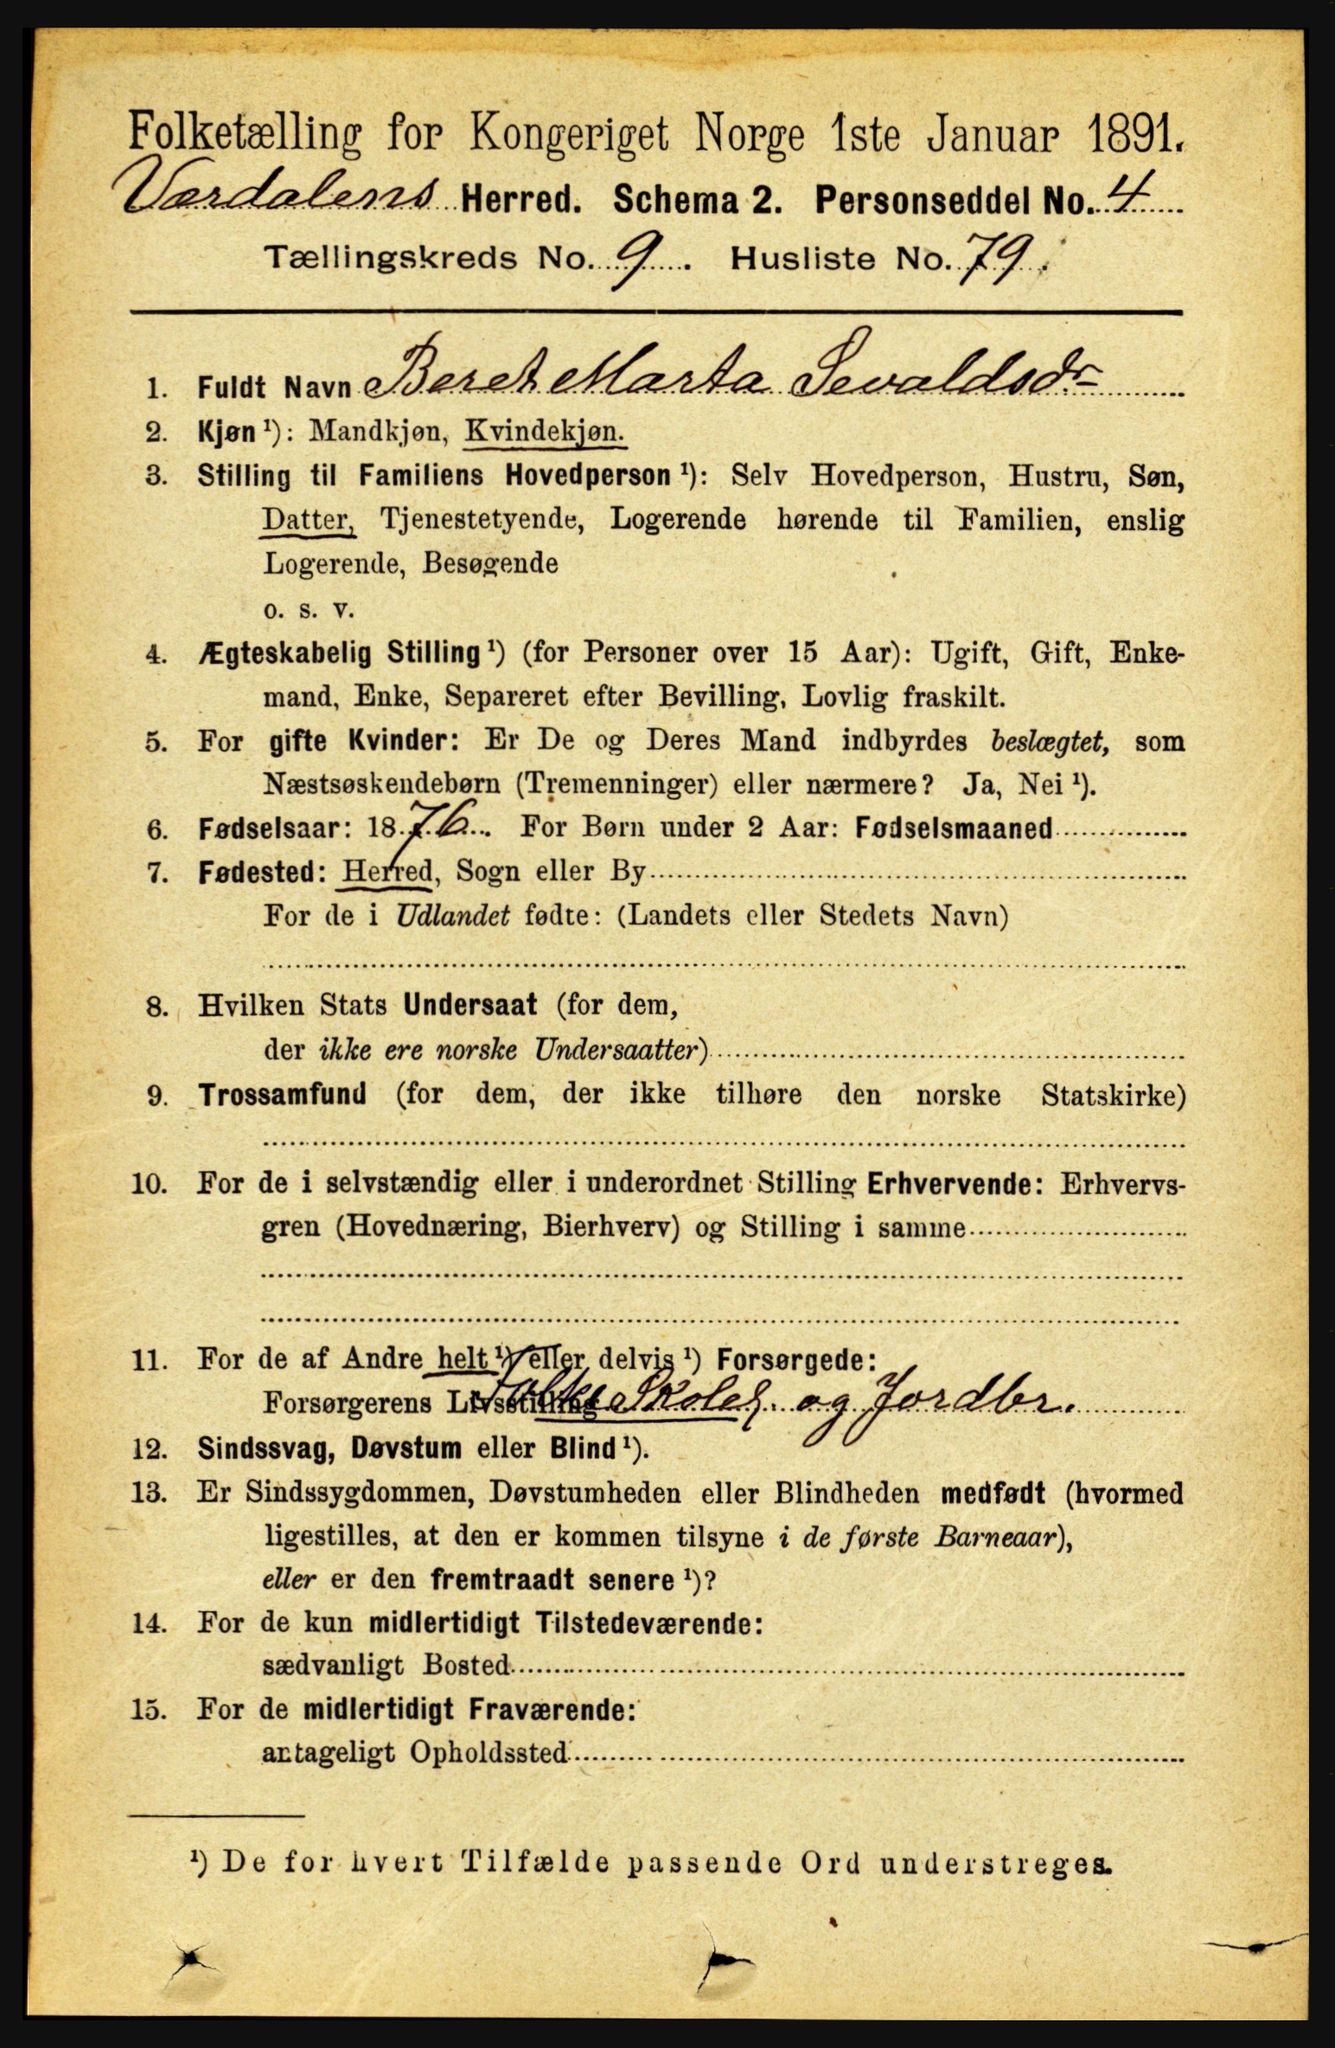 Folketælling for Kongeriget Norge 1ste Januar 1891.
Værdalens Herred. Schema 2. Personseddel No. 4
Tællingskreds No. 9. Husliste No. 79.
1. Fuldt Navn Beret Marta Sevaldsdr
2. Kjøn ¹): Mandkjøn, Kvindekjøn.
3. Stilling til Familiens Hovedperson ¹): Selv Hovedperson, Hustru, Søn,
Datter, Tjenestetyende, Logerende hørende til Familien, enslig
Logerende, Besøgende
o. s. v.
4. Ægteskabelig Stilling ¹) (for Personer over 15 Aar): Ugift, Gift, Enke-
mand, Enke, Separeret efter Bevilling, Lovlig fraskilt.
5. For gifte Kvinder: Er De og Deres Mand indbyrdes beslægtet, som
Næstsøskendebørn (Tremenninger) eller nærmere? Ja, Nei ¹).
6. Fødselsaar: 1876. For Børn under 2 Aar: Fødselsmaaned
7. Fødested: Herred, Sogn eller By
For de i Udlandet fødte: (Landets eller Stedets Navn)
8. Hvilken Stats Undersaat (for dem,
der ikke ere norske Undersaatter)
9. Trossamfund (for dem, der ikke tilhøre den norske Statskirke)
10. For de i selvstændig eller i underordnet Stilling Erhvervende: Erhvervs-
gren (Hovednæring, Bierhverv) og Stilling i samme
11. For de af Andre helt ¹) eller delvis ¹) Forsørgede:
Forsørgerens Livsstilling Skolel. og Jordbr.
12. Sindssvag, Døvstum eller Blind ¹).
13. Er Sindssygdommen, Døvstumheden eller Blindheden medfødt (hvormed
ligestilles, at den er kommen tilsyne i de første Barneaar),
eller er den fremtraadt senere ¹)?
14. For de kun midlertidigt Tilstedeværende:
sædvanligt Bosted
15. For de midlertidigt Fraværende:
antageligt Opholdssted
¹) De for hvert Tilfælde passende Ord understreges.